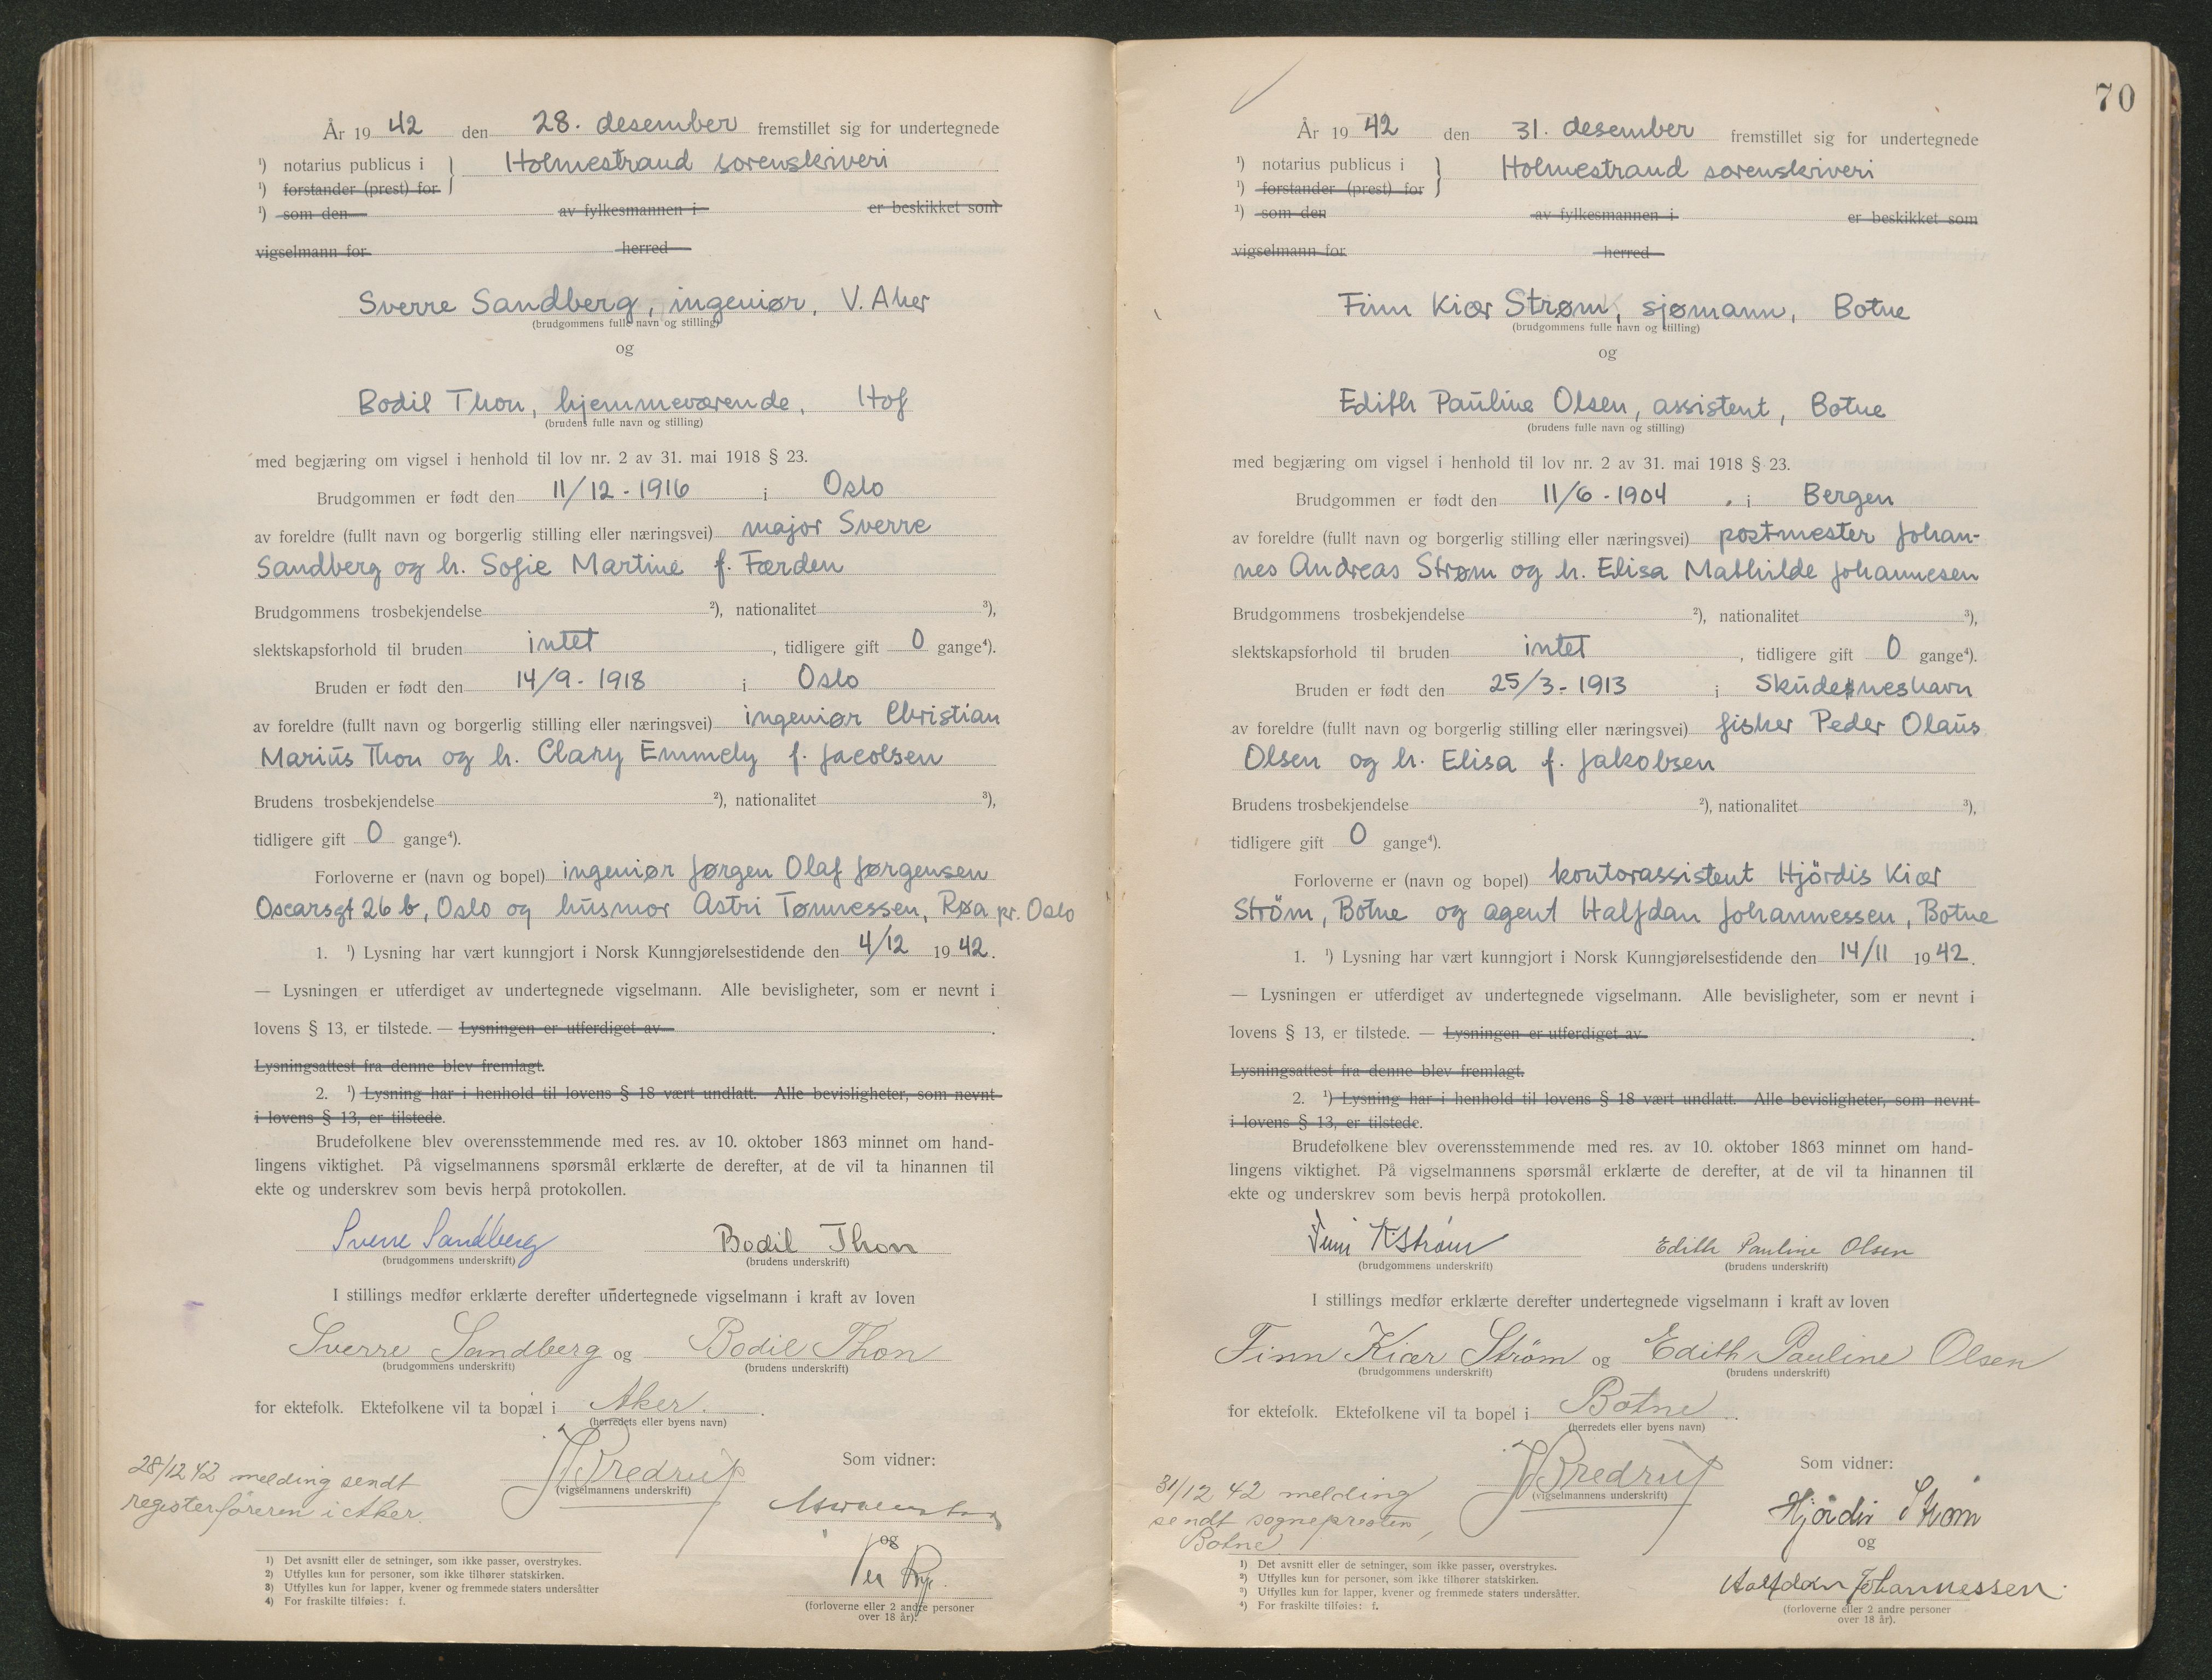 År 19 42 den 28. desember fremstillet sig for undertegnede
¹) notarius publicus i } Holmestrand sorenskriveri
¹) forstander (prest) for
¹) som den av fylkesmannen i er beskikket som
vigselmann for herred
Sverre Sandberg, ingeniør, V. Aker
(brudgommens fulle navn og stilling)
og
Bodil Thon, hjemmeværende, Hof
(brudens fulle navn og stilling)
med begjæring om vigsel i henhold til lov nr. 2 av 31. mai 1918 § 23.
Brudgommen er født den 11/12 - 1916 i Oslo
av foreldre (fullt navn og borgerlig stilling eller næringsvei) major Sverre
Sandberg og h. Sofie Martine f. Færden
Brudgommens trosbekjendelse ²), nationalitet ³),
slektskapsforhold til bruden intet, tidligere gift 0 gange⁴).
Bruden er født den 14/9 - 1918 i Oslo
av foreldre (fullt navn og borgerlig stilling eller næringsvei) ingeniør Christian
Marius Thon og h. Clary Emmely f. Jacobsen
Brudens trosbekjendelse ²), nationalitet ³),
tidligere gift 0 gange⁴).
Forloverne er (navn og bopel) ingeniør Jørgen Olaf Jørgensen
Oscarsgt 26 b, Oslo og husmor Astri Tønnessen, Røa pr. Oslo
1. ¹) Lysning har vært kunngjort i Norsk Kunngjørelsestidende den 4/12 19 42.
— Lysningen er utferdiget av undertegnede vigselmann. Alle bevisligheter, som er nevnt i
lovens § 13, er tilstede. — Lysningen er utferdiget av
Lysningsattest fra denne blev fremlagt.
2. ¹) Lysning har i henhold til lovens § 18 vært undlatt. Alle bevisligheter, som nevnt
i lovens § 13, er tilstede.
Brudefolkene blev overensstemmende med res. av 10. oktober 1863 minnet om hand-
lingens viktighet. På vigselmannens spørsmål erklærte de derefter, at de vil ta hinannen til
ekte og underskrev som bevis herpå protokollen.
Sverre Sandberg Bodil Thon
(brudgommens underskrift) (brudens underskrift)
I stillings medfør erklærte derefter undertegnede vigselmann i kraft av loven
Sverre Sandberg og Bodil Thon
(brudgommens underskrift) (brudens underskrift)
for ektefolk. Ektefolkene vil ta bopæl i Aker.
(herredets eller byens navn)
28/12 42 melding sendt
registerföreren i Aker.
J Bredrup
(vigselmannens underskrift)
Som vidner:
og
(forloverne eller 2 andre personer
over 18 år).
1) Det avsnitt eller de setninger, som ikke passer, overstrykes.
2) Utfylles kun for personer, som ikke tilhører statskirken.
3) Utfylles kun for lapper, kvener og fremmede staters undersåtter
4) For fraskilte tilføies: f.
70
År 19 42 den 31. desember fremstillet sig for undertegnede
¹) notarius publicus i } Holmestrand sorenskriveri
¹) forstander (prest) for
¹) som den av fylkesmannen i er beskikket som
vigselmann for herred
Finn Kiær Strøm, sjømann, Botne
(brudgommens fulle navn og stilling)
og
Edith Pauline Olsen, assistent, Botne
(brudens fulle navn og stilling)
med begjæring om vigsel i henhold til lov nr. 2 av 31. mai 1918 § 23.
Brudgommen er født den 11/6 - 1904 i Bergen
av foreldre (fullt navn og borgerlig stilling eller næringsvei) postmester Johan-
nes Andreas Strøm og h. Elisa Mathilde Johannesen
Brudgommens trosbekjendelse ²), nationalitet ³),
slektskapsforhold til bruden intet, tidligere gift 0 gange⁴).
Bruden er født den 25/3 - 1913 i Skudesneshavn
av foreldre (fullt navn og borgerlig stilling eller næringsvei) fisker Peder Olaus
Olsen og h. Elisa f. Jakobsen
Brudens trosbekjendelse ²), nationalitet ³),
tidligere gift 0 gange⁴).
Forloverne er (navn og bopel) kontorassistent Hjördis Kiær
Ström, Botne og agent Halfdan Johannessen, Botne
1. ¹) Lysning har vært kunngjort i Norsk Kunngjørelsestidende den 14/11 19 42.
— Lysningen er utferdiget av undertegnede vigselmann. Alle bevisligheter, som er nevnt i
lovens § 13, er tilstede. — Lysningen er utferdiget av
Lysningsattest fra denne blev fremlagt.
2. ¹) Lysning har i henhold til lovens § 18 vært undlatt. Alle bevisligheter, som nevnt
i lovens § 13, er tilstede.
Brudefolkene blev overensstemmende med res. av 10. oktober 1863 minnet om hand-
lingens viktighet. På vigselmannens spørsmål erklærte de derefter, at de vil ta hinannen til
ekte og underskrev som bevis herpå protokollen.
Finn K. Strøm Edith Pauline Olsen
(brudgommens underskrift) (brudens underskrift)
I stillings medfør erklærte derefter undertegnede vigselmann i kraft av loven
Finn Kiær Strøm og Edith Pauline Olsen
(brudgommens underskrift) (brudens underskrift)
for ektefolk. Ektefolkene vil ta bopel i Botne
(herredets eller byens navn)
31/12 42 melding
sendt sognepresten,
Botne.
J Bredrup
(vigselmannens underskrift)
Som vidner:
Hjördis Strøm
og
Halfdan Johannessen.
(forloverne eller 2 andre personer
over 18 år).
1) Det avsnitt eller de setninger, som ikke passer, overstrykes.
2) Utfylles kun for personer, som ikke tilhører statskirken.
3) Utfylles kun for lapper, kvener og fremmede staters undersåtter.
4) For fraskilte tilføies: f.